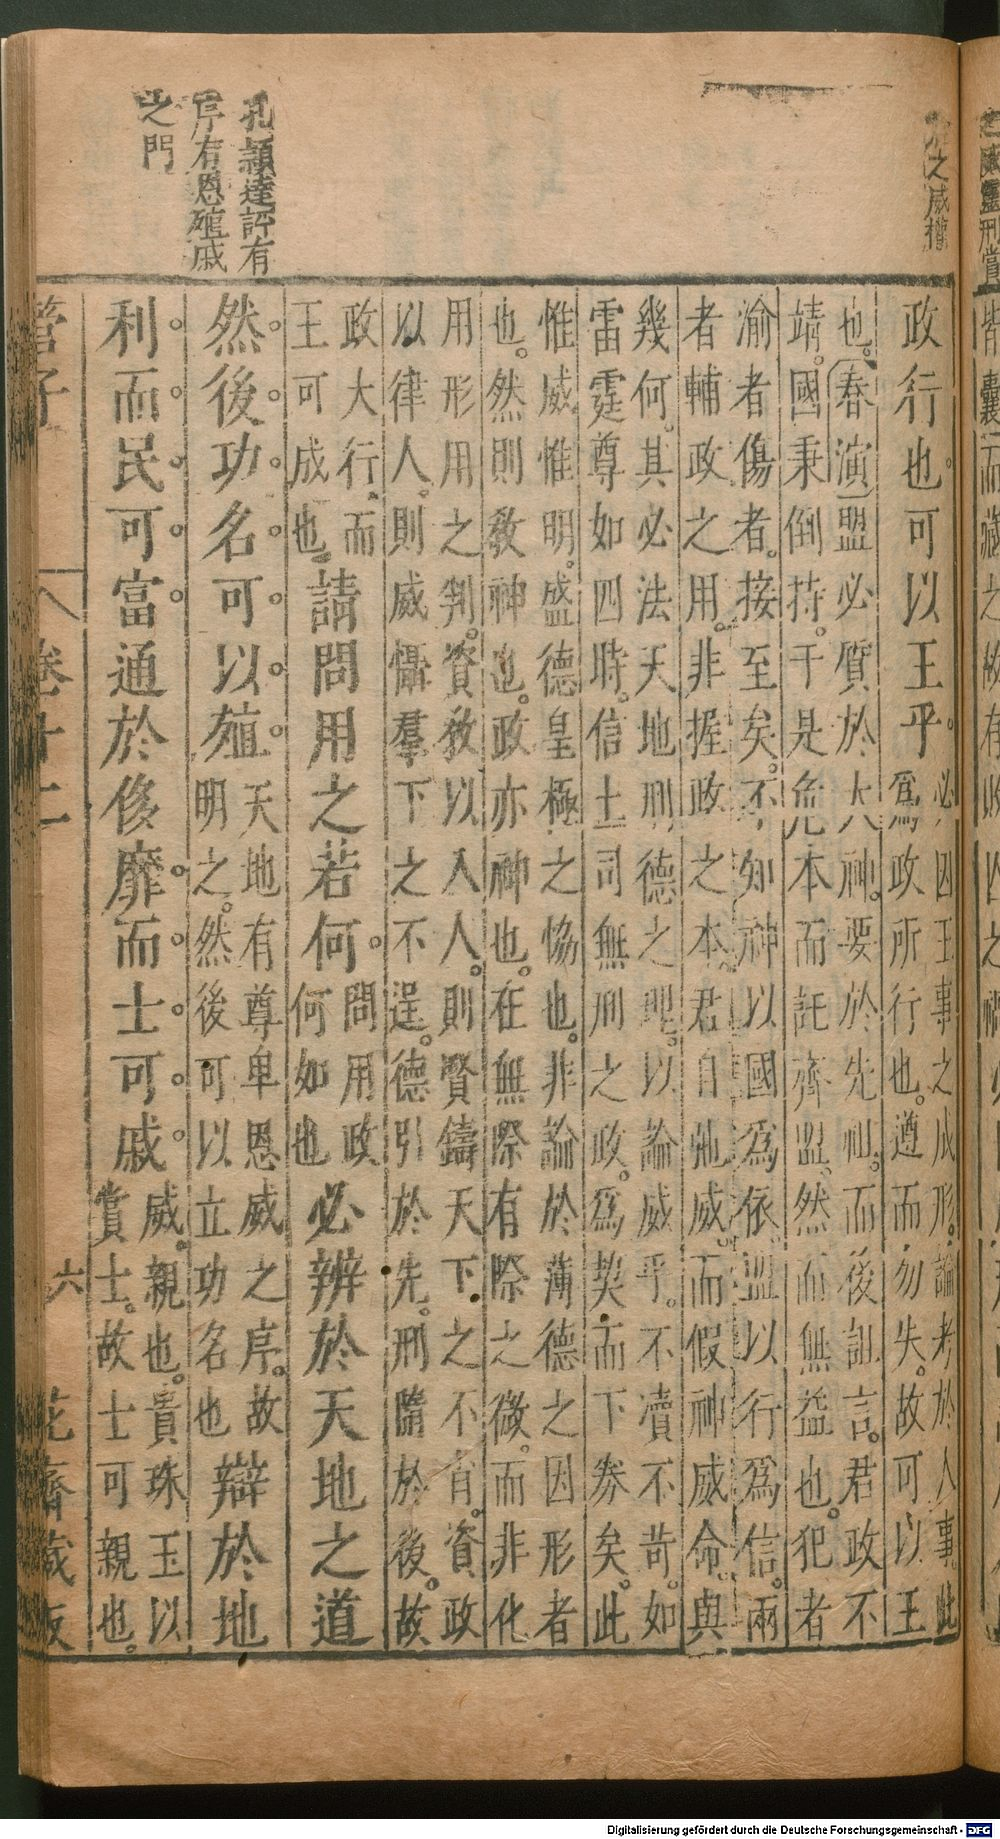 之威權
孔穎達評有
序有恩殖戚
之門
政行也可以王乎。必因王事之成形。論考於人事。此
爲政所行也。遵而勿失。故可以王
也。春演盟必質於大神。要於先祖。而後詛言。君政不
靖。國秉倒持。于是危本而託齊盟。然而無益也。犯者
渝者傷者。接至矣。不知神以國爲依。盟以行爲信。兩
者輔政之用。非握政之本。君自弛威。而假神威命。與
幾何。其必法天地刑德之理。以論威乎。不瀆不苛。如
雷霆尊如四時。信士司無刑之政。爲契而下券矣。此
惟威惟明。盛德皇極之恊也。非論於薄德之因形者
也。然則敎神也。政亦神也。在無際有際之微。而非化
用形用之判。資敎以入人。則賢鑄天下之不肖。資政
以律人。則威懾羣下之不逞。德引於先。刑隨於後。故
政大行。而
王可成也。請問用之若何。問用政
何如也必辨於天地之道
然後功名可以殖。天地有尊卑恩威之序。故
明之。然後可以立功名也辯於地
利而民可富。通於侈靡而士可戚。威。親也。貴珠玉以
賞士。故士可親也。
管子
卷十二
六
花齋藏板
Digitalisierung gefördert durch die Deutsche Forschungsgemeinschaft - DFG